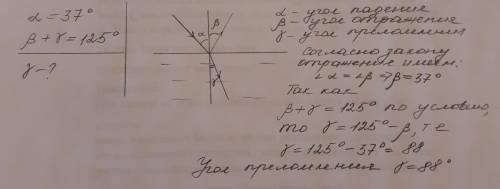 α = 37°
β + γ = 125°
γ - ?
α β
γ
α - угол падения
β - угол отражения
γ - угол преломления
Согласно закону
отражение имеем:
∠α = ∠β ⇒ β = 37°
Так как
β + γ = 125° по условию,
то γ = 125° - β, т.е
γ = 125° - 37° = 88
Угол преломления γ = 88°